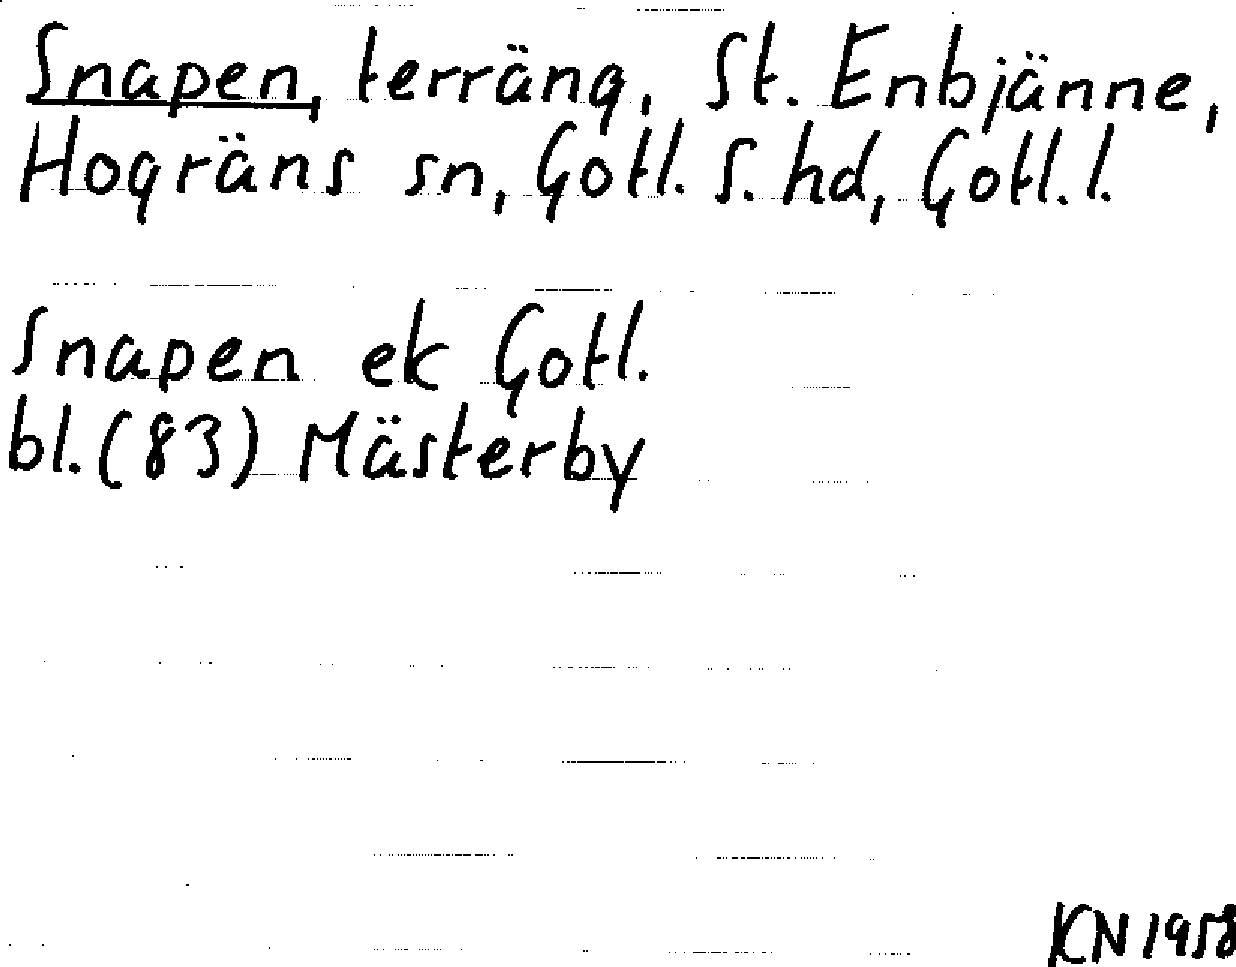 Snapen, terräng, St. Enbjänne,
Hogräns sn, Gotl. S. hd, Gotl. l.
Snapen ek Gotl.
bl. (83) Mästerby
KN 1958